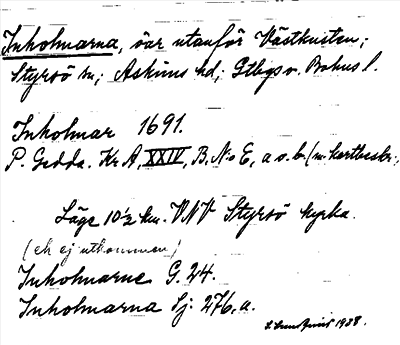 Inholmarna, öar utanför Västkusten;
Styrsö sn; Askims hd; Gtbgs o. Bohus l.
Inholmar 1691.
P. Gedda. Kr A, XXIV, B. N:o E, a o. b. (m. kartbeskr.,
Läge 10½ km. VNV Styrsö kyrka.
(ek ej utkommen)
Inholmarne G. 24.
Inholmarna Sj. 276, a.
1938.